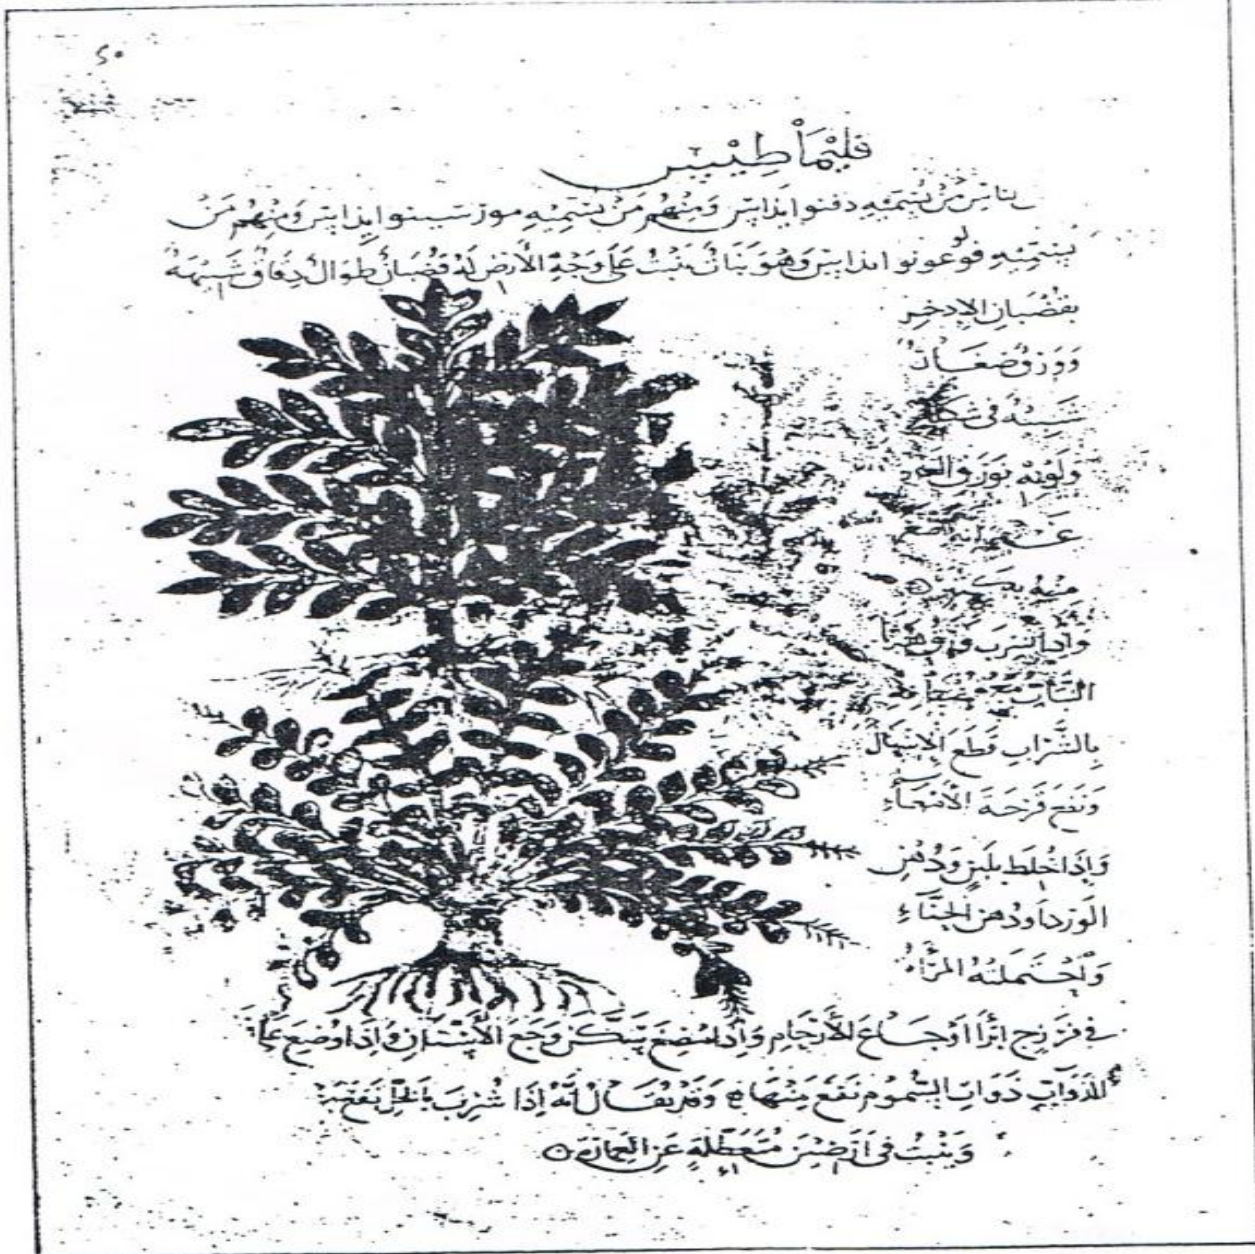 ٤٥
قليماطيس
الناس من يسميه دفنوايذاس ومنهم من يسميه مورسينوايذاس ومنهم من
يسميه فولوغونوايذاس وهو نبات ينبت على وجه الأرض له قضبان طوال دقاق شبيهة
بقضبان الإدخر
وورق صغار
شبيه في شكله
ولونه بورق الغار
غير أنه أصغر
منه بكثير
وإذا شرب ورق هذا
النبات مع قضبانه
بالشراب قطع الإسهال
ونفع قرحة الأمعاء
وإذا خلط بلبن ودهن
الورد أو دهن الحناء
واحتملته المرأة
في فرزجة أبرأ أوجاع الأرحام وإذا مضغ سكن وجع الأسنان وإذا وضع على
الدواب ذوات السموم نفع منها وقد يقال أنه إذا شرب بالخل نفع
وينبت في أرضين معطلة عن العمارة